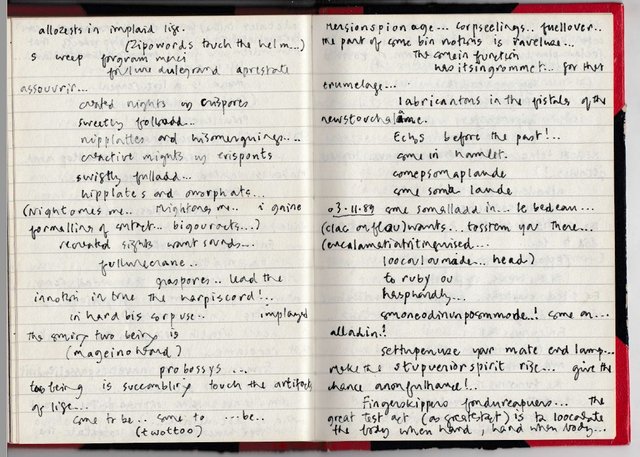 allozests in implaid lise.
(Zipowords touch the helm...)
s weep forgram merci
assouvrir...
nights in crispores
sweetly follradd...
nipplatles and
creactive mights in crisponts
swistly fulladd...
hipplates and omorphats...
(Nightomes me.. Mightones me... i gaine
formallins of contact... bigouracts...)
recreated sights want sounds...
fullurecrane..
graspores.. lead the
innotion in true the harpiscord!..
in hard bis corpuse.. implayed
The two being is
(mageinohrand)
probossys...
being is succombling touch the artifacts
of lise...
come to be.. come to ...be..
(twottoo)
mensionspionage... corpseelings.. fuellover..
me part of come bin notions is
The comein function
has itsingrommet... for that
erumelage...
labricantons in the pistales of the
newstouchslame.
Echos before the past!..
come in hamlet.
comepsomaplaude
come soma laude
03.11.89 come somalladd in... le bedeau...
(clac on flou) wants... tosstem you There...
(encalamestratritinguised...
loocouloumade... head)
to ruby ou
hasphandly...
smoneodinunposmmode..! come on...
alladin.!
settupenuze your mate end lamp...
make the stupveriorspirit rise... give the
chance anonfulhance!..
Fingerskippers fondureapuers... the
great test act (as greatstact) is to loocalate
the body when hand, hand when body...